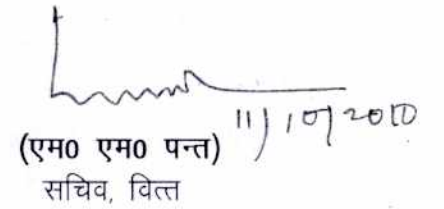 11/10/2010
(एम0 एम0 पन्त)
सचिव, वित्त